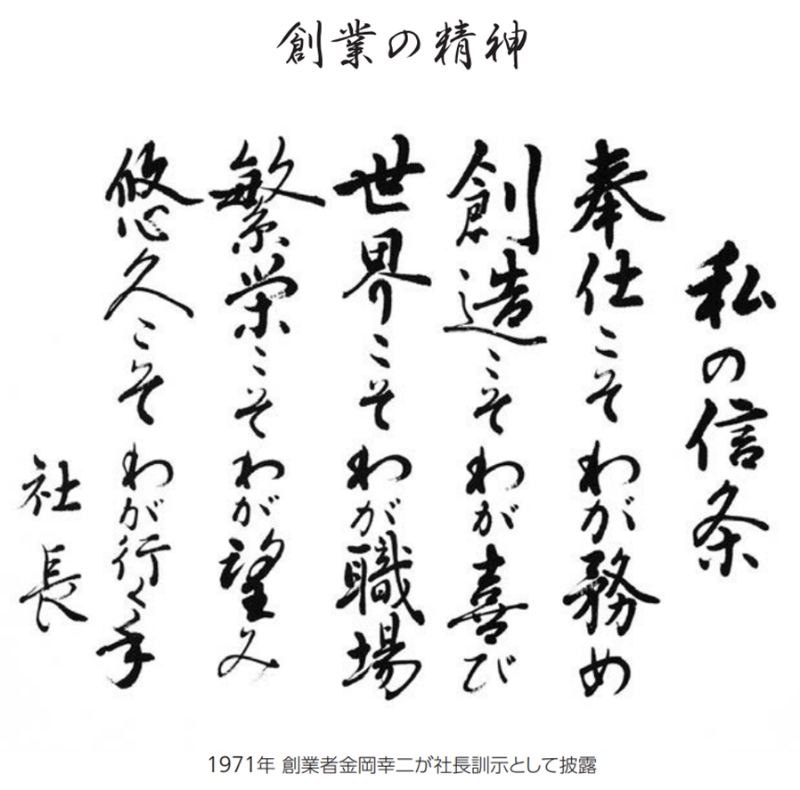 創業の精神
私の信条
奉仕こそわが務め
創造こそわが喜び
世界こそわが職場
繁栄こそわが望み
悠久こそわが行く手
社長
1971年 創業者金岡幸二が社長訓示として披露